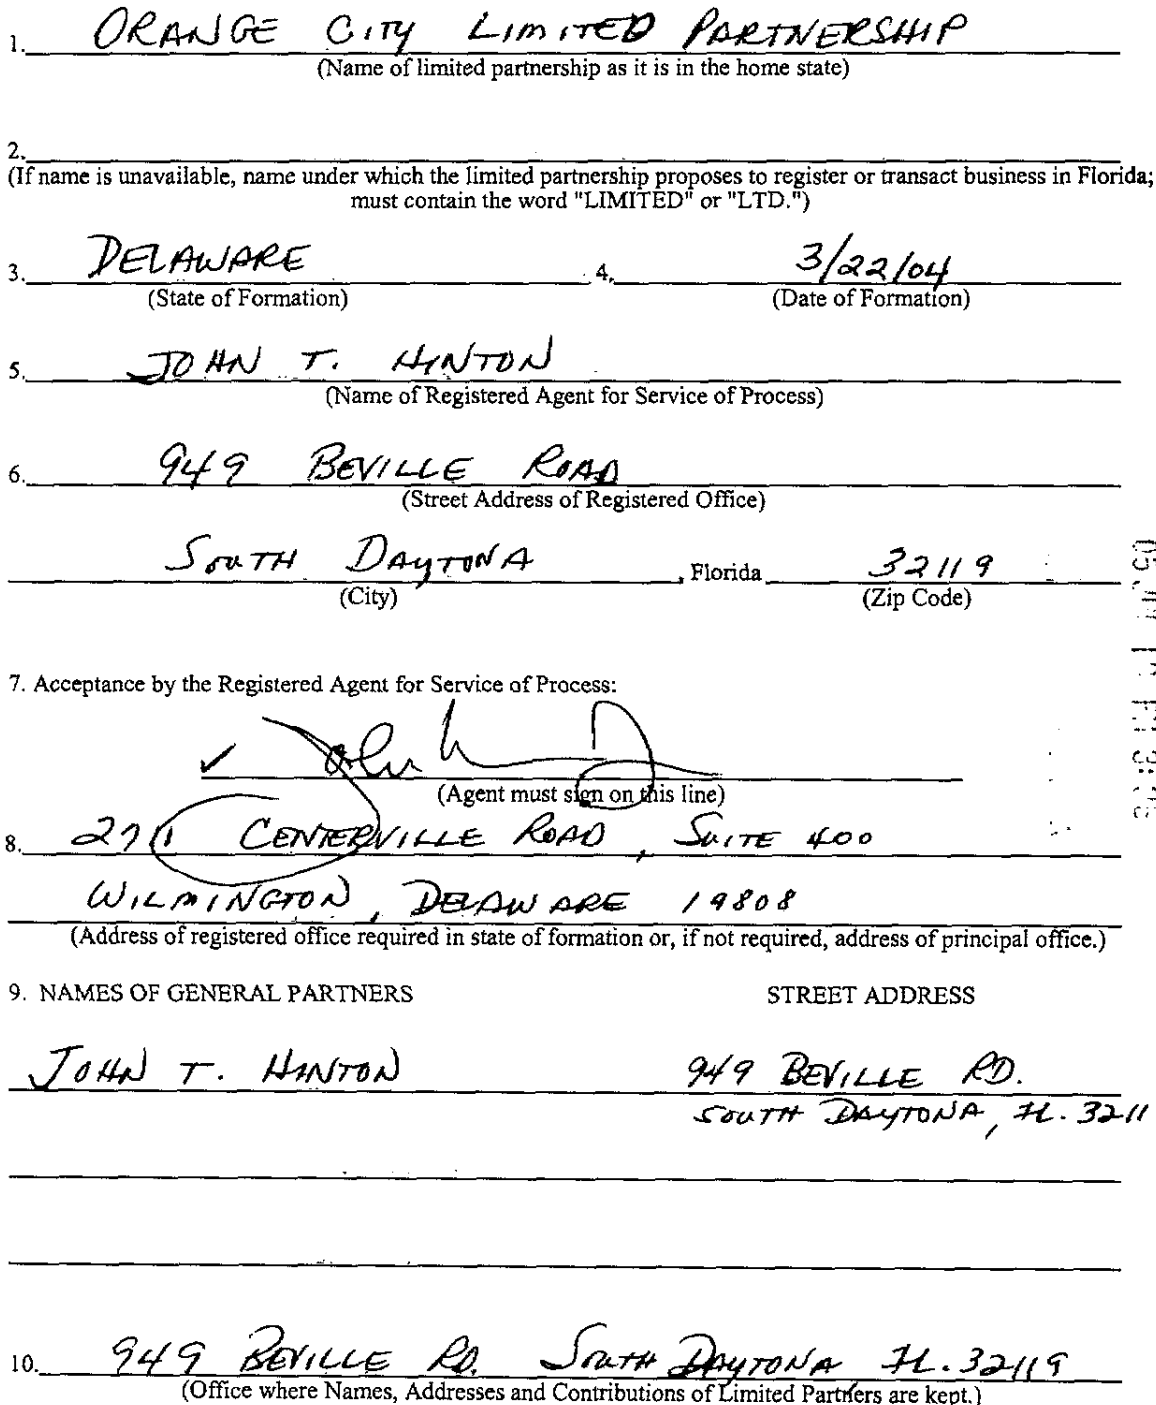 1. ORANGE CITY LIMITED PARTNERSHIP
(Name of limited partnership as it is in the home state)
2.
(If name is unavailable, name under which the limited partnership proposes to register or transact business in Florida;
must contain the word "LIMITED" or "LTD.")
3. DELAWARE 4. 3/22/04
(State of Formation) (Date of Formation)
5. JOHN T. HINTON
(Name of Registered Agent for Service of Process)
6. 949 BEVILLE ROAD
(Street Address of Registered Office)
SOUTH DAYTONA , Florida 32119
(City) (Zip Code)
7. Acceptance by the Registered Agent for Service of Process:
(Agent must sign on this line)
8. CENTERVILLE ROAD, SUITE 400
WILMINGTON, DELAWARE 19808
(Address of registered office required in state of formation or, if not required, address of principal office.)
9. NAMES OF GENERAL PARTNERS STREET ADDRESS
JOHN T. HINTON 949 BEVILLE RD.
SOUTH DAYTONA, FL. 3211
10. 949 BEVILLE RD. SOUTH DAYTONA FL. 32119
(Office where Names, Addresses and Contributions of Limited Partners are kept.)